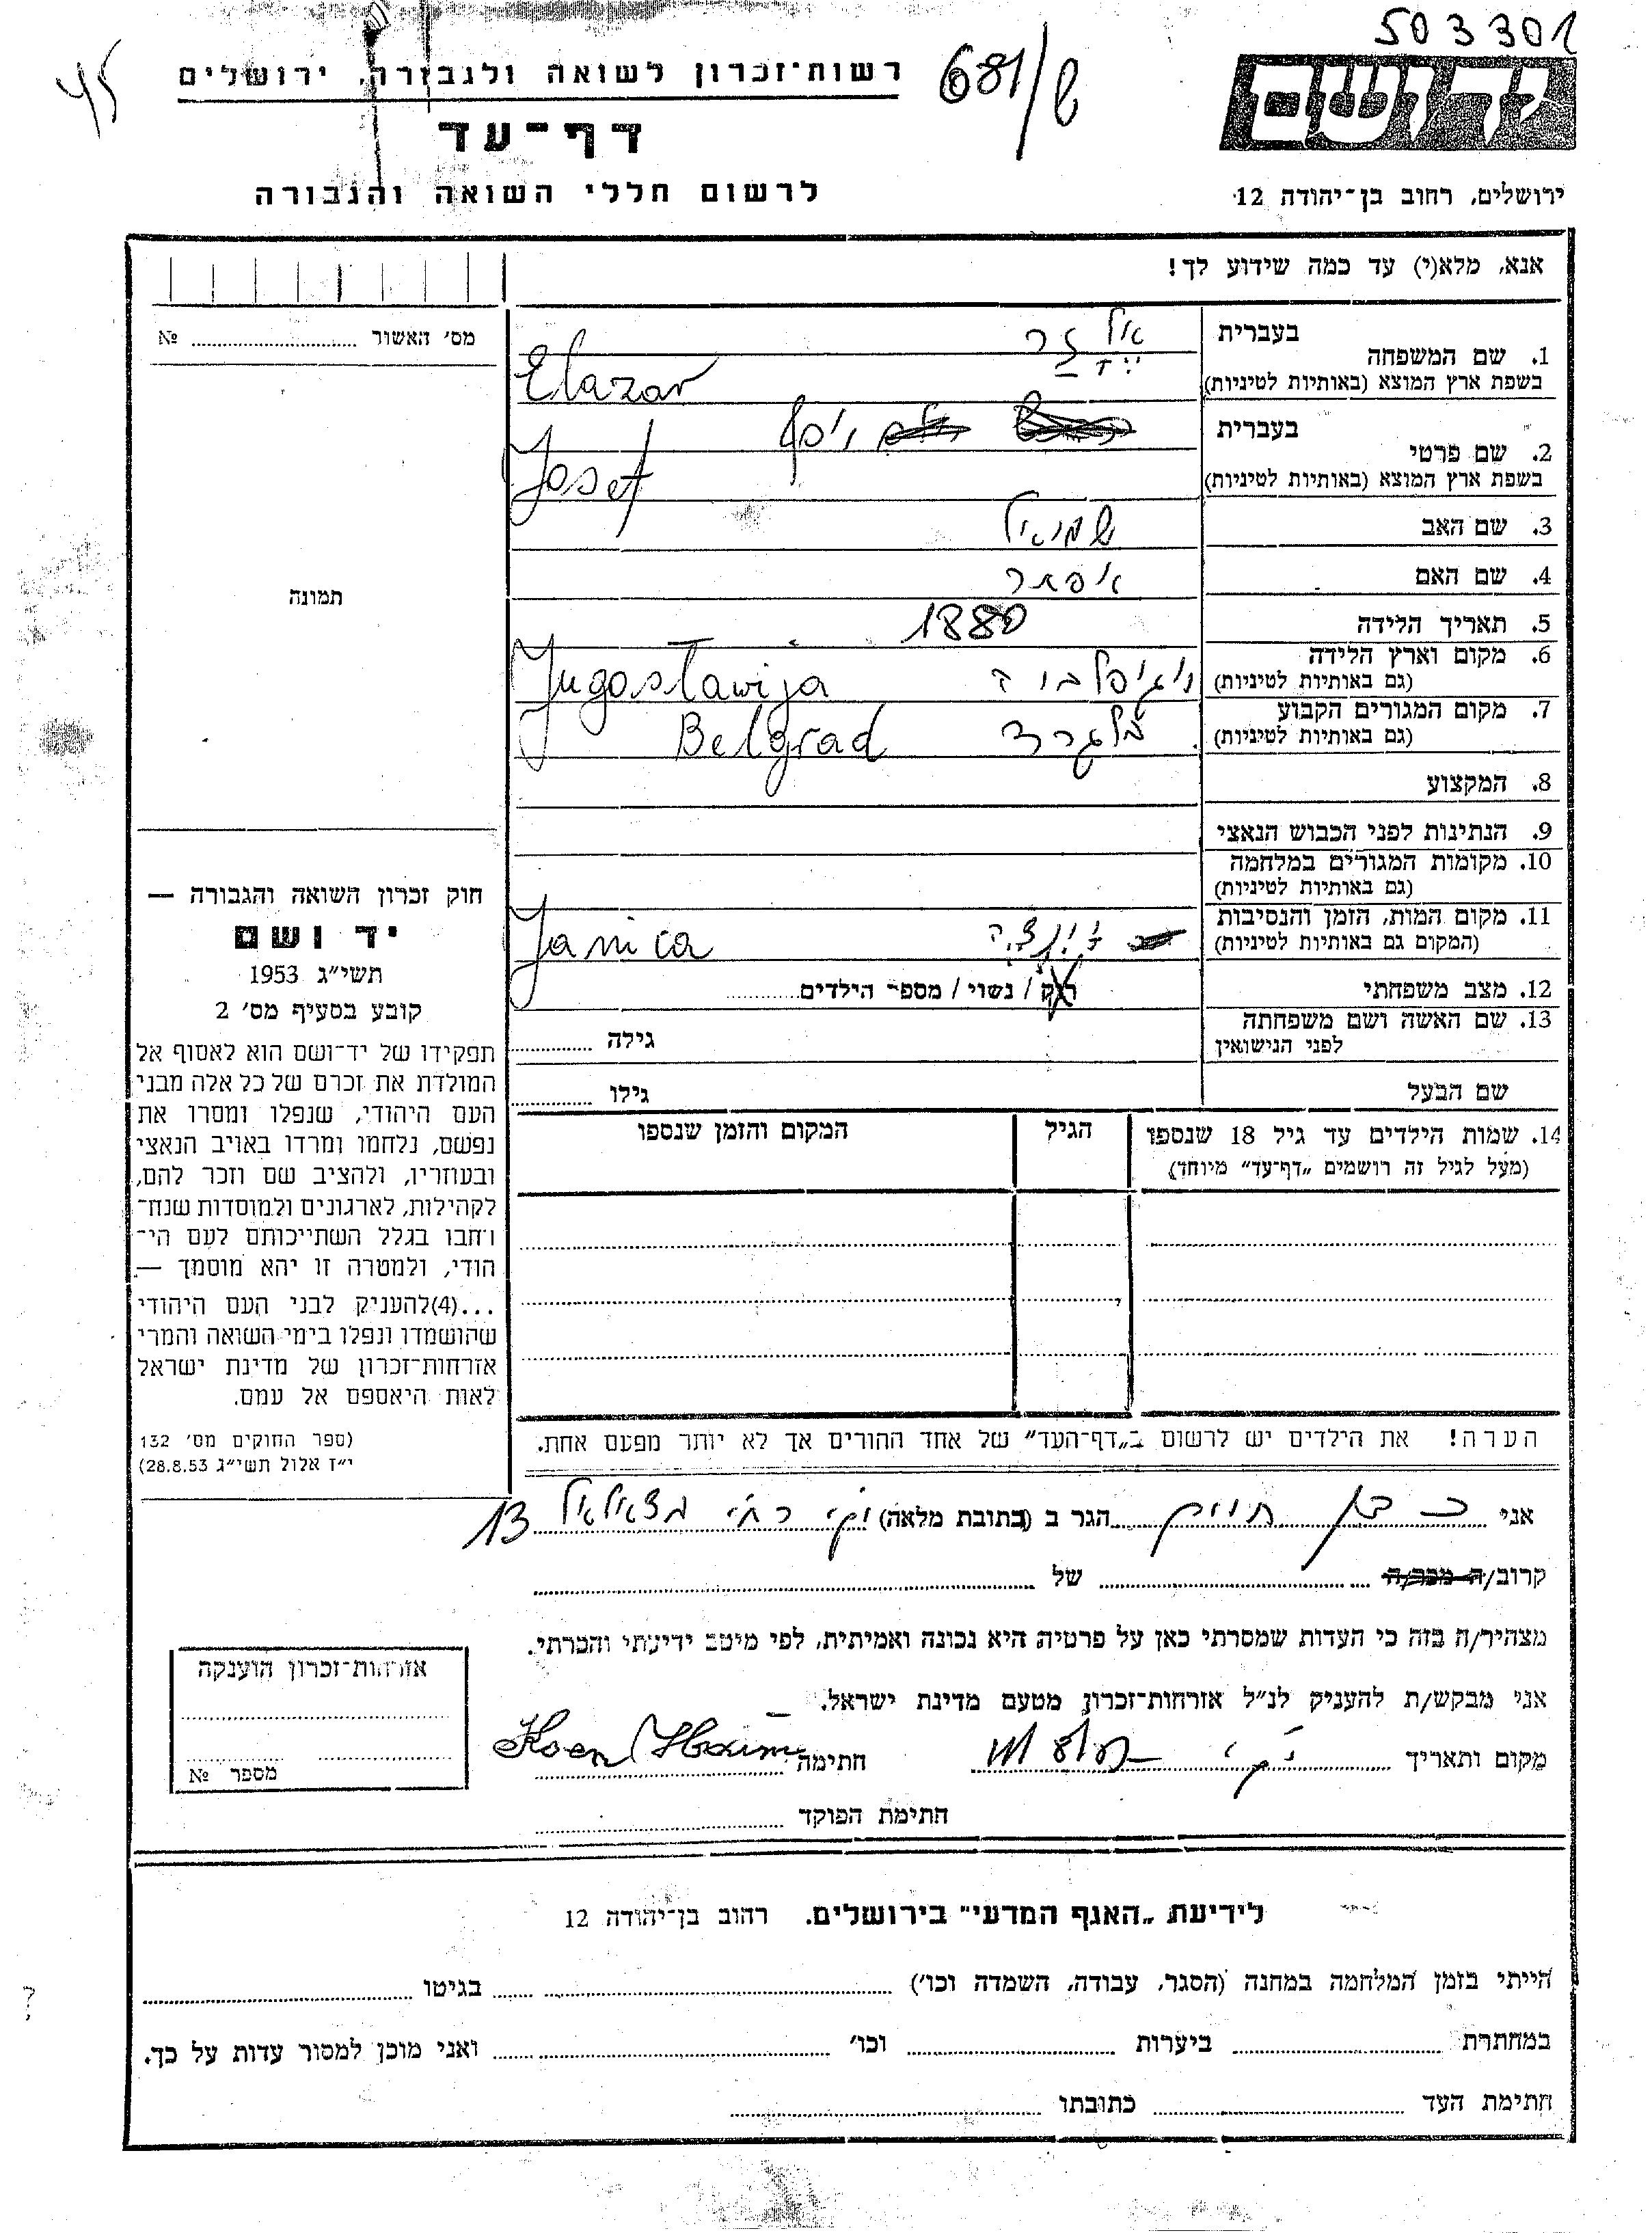 503301
45
681/8
יד ושם
רשות־זכרון לשואה ולגבורה, ירושלים
דף־עד
לרשום חללי השואה והגבורה
ירושלים, רחוב בן־יהודה 12
אנא, מלא(י) עד כמה שידוע לך!
מס' האשור № 
תמונה
1. שם המשפחה
בעברית
בשפת ארץ המוצא (באותיות לטיניות)
Elazar
2. שם פרטי
בעברית
יוסף
בשפת ארץ המוצא (באותיות לטיניות)
Josef
3. שם האב
שמואל
4. שם האם
אסתר
5. תאריך הלידה
1880
6. מקום וארץ הלידה
(גם באותיות לטיניות)
Jugoslawija
7. מקום המגורים הקבוע
(גם באותיות לטיניות)
בלגרד Belgrad
8. המקצוע
9. הנתינות לפני הכבוש הנאצי
10. מקומות המגורים במלחמה
(גם באותיות לטיניות)
11. מקום המות, הזמן והנסיבות
(המקום גם באותיות לטיניות)
Janica
12. מצב משפחתי
רוק / נשוי / מספר הילדים
13. שם האשה ושם משפחתה
לפני הנישואין
גילה
שם הבעל
גילו
14. שמות הילדים עד גיל 18 שנספו
(מעל לגיל זה רושמים „דף־עד" מיוחד)
הגיל
המקום והזמן שנספו
הערה! את הילדים יש לרשום ב„דף־העד" של אחד ההורים אך לא יותר מפעם אחת.
חוק זכרון השואה והגבורה —
יד ושם
תשי"ג 1953
קובע בסעיף מס' 2
תפקידו של יד־ושם הוא לאסוף אל
המולדת את זכרם של כל אלה מבני
העם היהודי, שנפלו ומסרו את
נפשם, נלחמו ומרדו באויב הנאצי
ובעוזריו, ולהציב שם וזכר להם,
לקהילות, לארגונים ולמוסדות שנח־
רבו בגלל השתייכותם לעם הי־
הודי, ולמטרה זו יהא מוסמך —
...(4) להעניק לבני העם היהודי
שהושמדו ונפלו בימי השואה והמרי
אזרחות־זכרון של מדינת ישראל
לאות היאספם אל עמם.
(ספר החוקים מס' 132
י"ז אלול תשי"ג 28.8.53)
אני כהן חיים הגר ב (כתובת מלאה) יפו רח' בצאלאל 13
קרוב/ה מכר/ה של
מצהיר/ה בזה כי העדות שמסרתי כאן על פרטיה היא נכונה ואמיתית, לפי מיטב ידיעתי והכרתי.
אני מבקש/ת להעניק לנ"ל אזרחות־זכרון מטעם מדינת ישראל.
מקום ותאריך חתימה Koen Haim
חתימת הפוקד
אזרחות־זכרון הוענקה
מספר №
לידיעת „האגף המדעי" בירושלים. רחוב בן־יהודה 12
הייתי בזמן המלחמה במחנה (הסגר, עבודה, השמדה וכו') בגיטו
במחתרת ביערות וכו' ואני מוכן למסור עדות על כך.
חתימת העד כתובתו